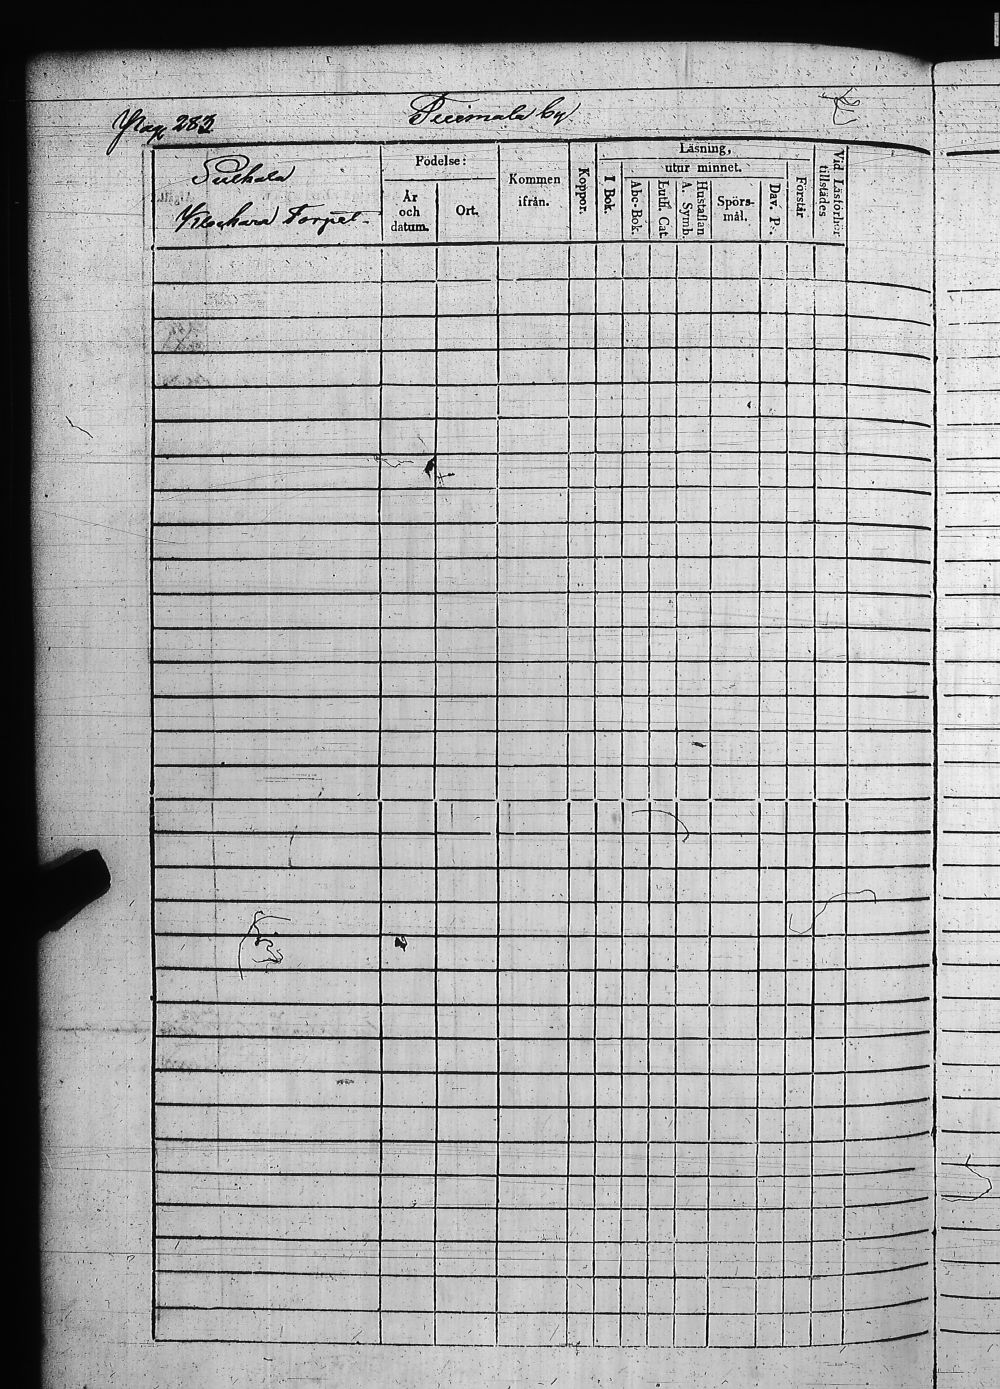 Pag. 283
by
Födelse:
År
och
datum.
Ort.
Kommen
ifrån.
Koppor.
Läsning,
I Bok.
utur minnet.
Abc-Bok.
Luth. Cat.
Hustaflan
A. Symb.
Spörs-
mål.
Dav. P.
Förstår
Vid Läsförhör
tillstädes
Torpet